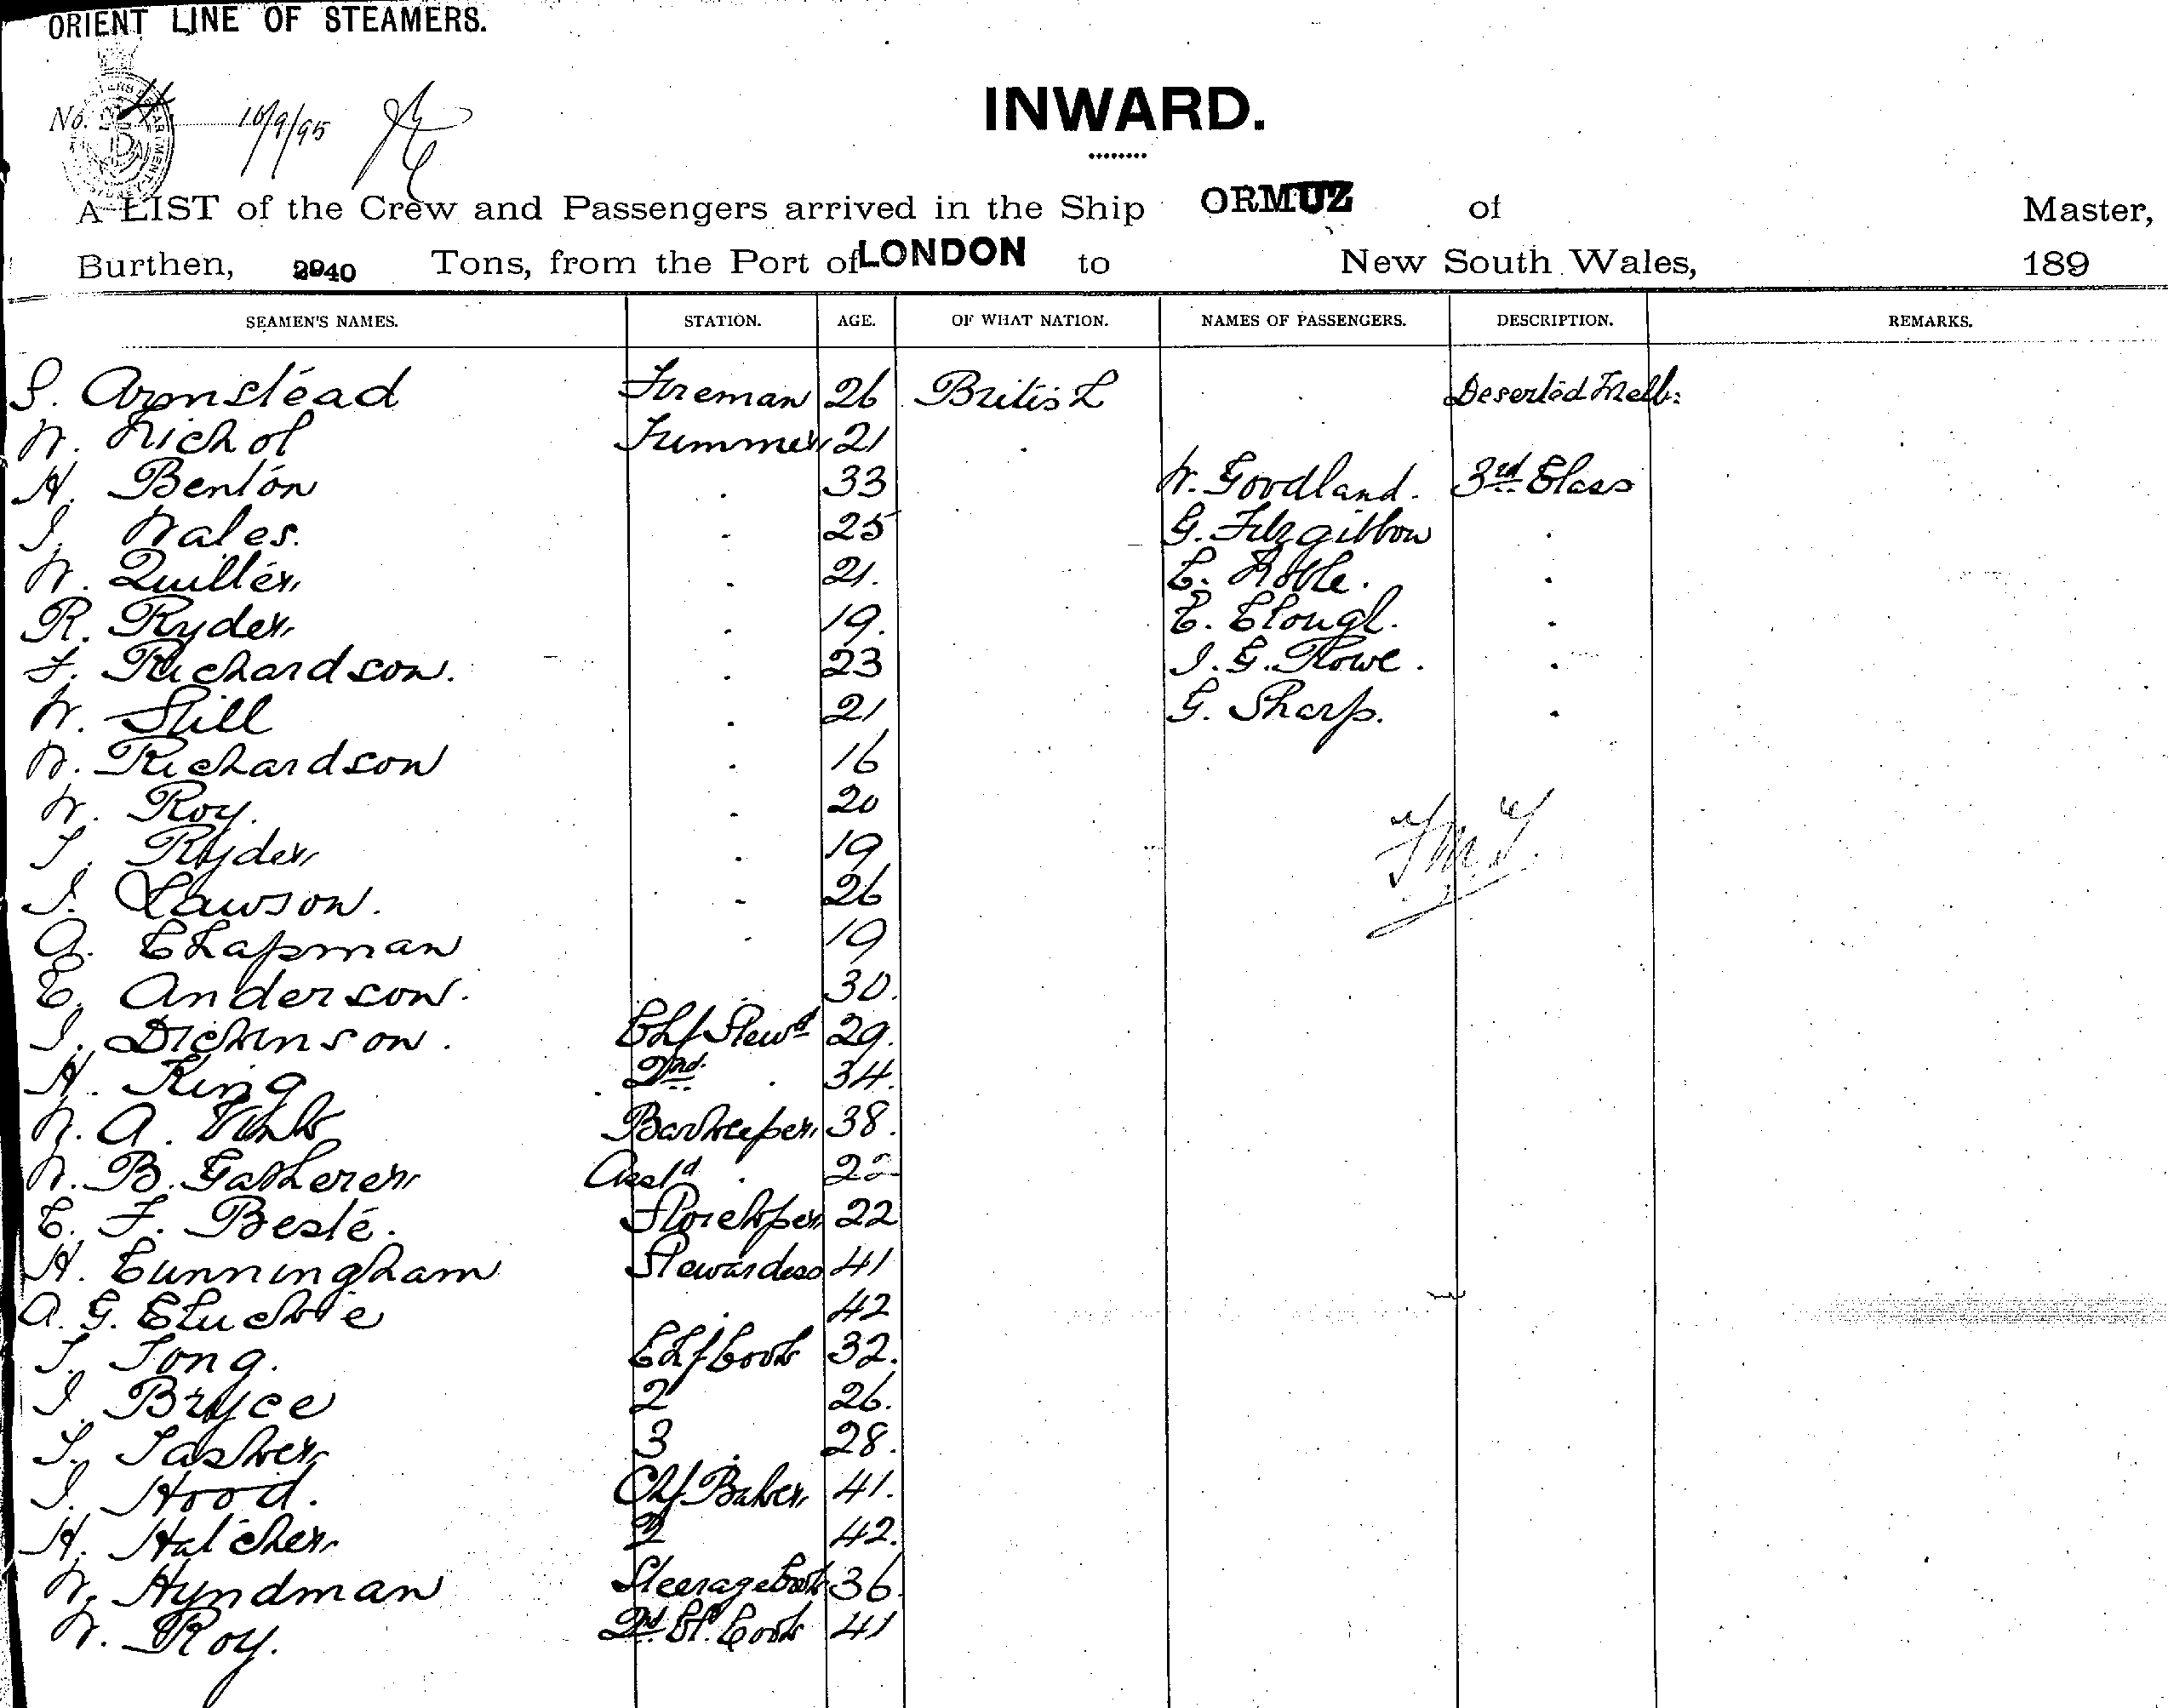 ORIENT LINE OF STEAMERS.
No. 4 10/9/95
INWARD.
A LIST of the Crew and Passengers arrived in the Ship ORMUZ of Master,
Burthen, 2940 Tons, from the Port of LONDON to New South Wales, 189
SEAMEN'S NAMES. STATION. AGE. OF WHAT NATION. NAMES OF PASSENGERS. DESCRIPTION. REMARKS.
S. Armstead Fireman 26 British Deserted Melb:
W. Nichol Trimmer 21
H. Benton . 33 W. Goodland. 3rd Class
J. Wales. . 25 G. Fitzgibbon .
W. Quiller . 21. E. Noble. .
R. Ryder . 19. E. Clough. .
F. Richardson. . 23 J. G. Rowe. .
W. Still . 21 G. Sharp. .
W. Richardson . 16
W. Roy. . 20
T. Ryder . 19
J. Lawson. . 26
A. Chapman . 19
C. Anderson. . 30.
J. Dickinson. Chf Stewd 29.
H. King 2nd. . 34.
W. A. Barkeeper 38.
W. B. Gatherer Asstd .
C. F. Beste. Storekper 22
H. Cunningham Stewardess 41
A. G. . 42
T. Tong. Chf Cook 32.
J. Bryce 2 26.
T. Tasker 3 . 28.
J. Hood. Chf Baker 41.
H. Hatcher 2 42.
W. Hyndman Steerage Cook 36.
W. Roy. 2nd Cl. Cook 41